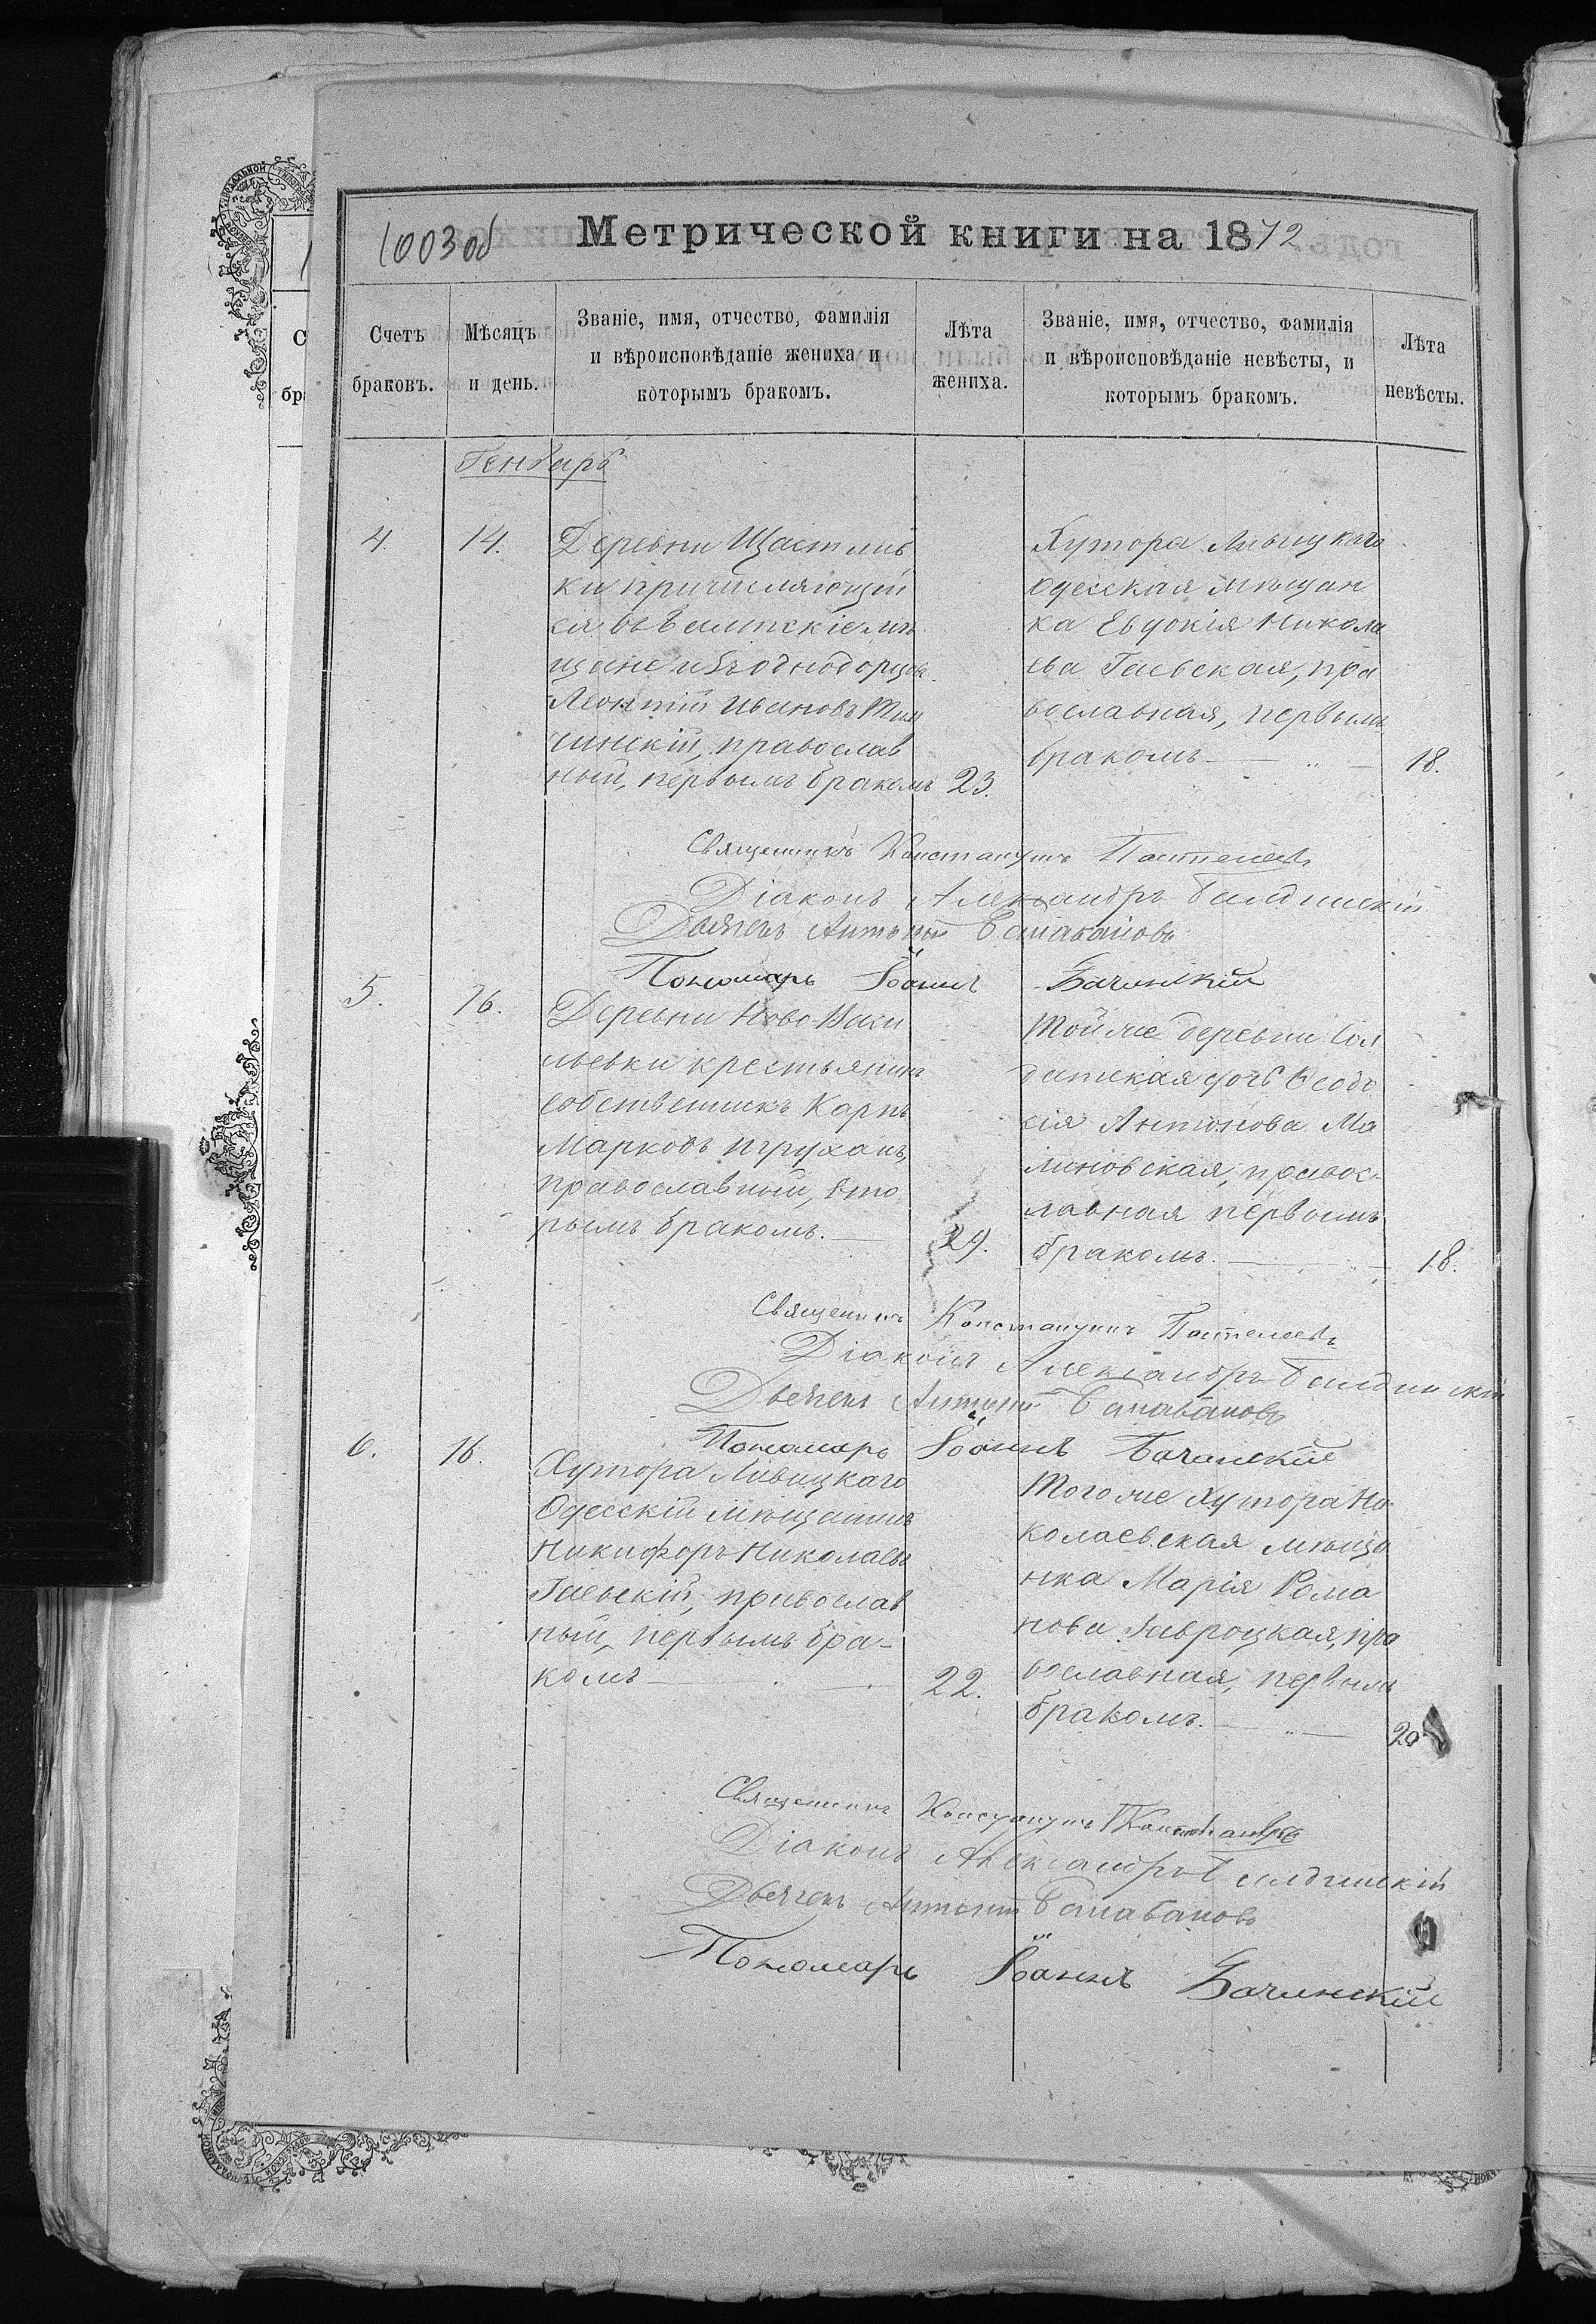 1003об
Метрической книги на 1872
Счетъ браковъ.
Мѣсяцъ и день.
Званіе, имя, отчество, фамилія
и вѣроисповѣданіе жениха и
которымъ бракомъ.
Лѣта жениха.
Званіе, имя, отчество, фамилія
и вѣроисповѣданіе невѣсты, и
которымъ бракомъ.
Лѣта невѣсты.
Генварь
4.
14.
Деревни Щастлив
ки причисляющій
ся въ мѣ
щане изъ однодворцевъ
Леонтій Ивановъ
чинскій, православ
ный, первымъ бракомъ
23.
Хутора Ливицкаго
Одесская мѣщан
ка Евдокія Никола
ева Гаевская, пра
вославная, первымъ
бракомъ
18.
Священникъ Константинъ Пантелеевъ
Діаконъ Александръ
Дьячекъ Антоній Балабановъ
Пономарь Іоаннъ Бачинскій
5.
16.
Деревни Ново-Васи
льевки крестьянинъ
собственникъ Карпъ
Марковъ
православный, вто
рымъ бракомъ.
29.
Той же деревни Сол
датская дочь Ѳеодо
сія Антонова Ма
линовская, правос
лавная первымъ
бракомъ.
18.
Священникъ Константинъ Пантелеевъ
Діаконъ Александръ
Дьячекъ Антоній Балабановъ
Пономарь Іоаннъ Бачинскій
6.
16.
Хутора Ливицкаго
Одесскій мѣщанинъ
Никифоръ Николаевъ
Гаевскій, православ
ный, первымъ бра-
комъ
22.
Того же хутора Ни
колаевская мѣща
нка Марія Рома
нова Завроцкая, пра
вославная, первымъ
бракомъ.
20
Священникъ Константинъ
Діаконъ Александръ
Дьячекъ Антоній Балабановъ
Пономарь Іоаннъ Бачинскій